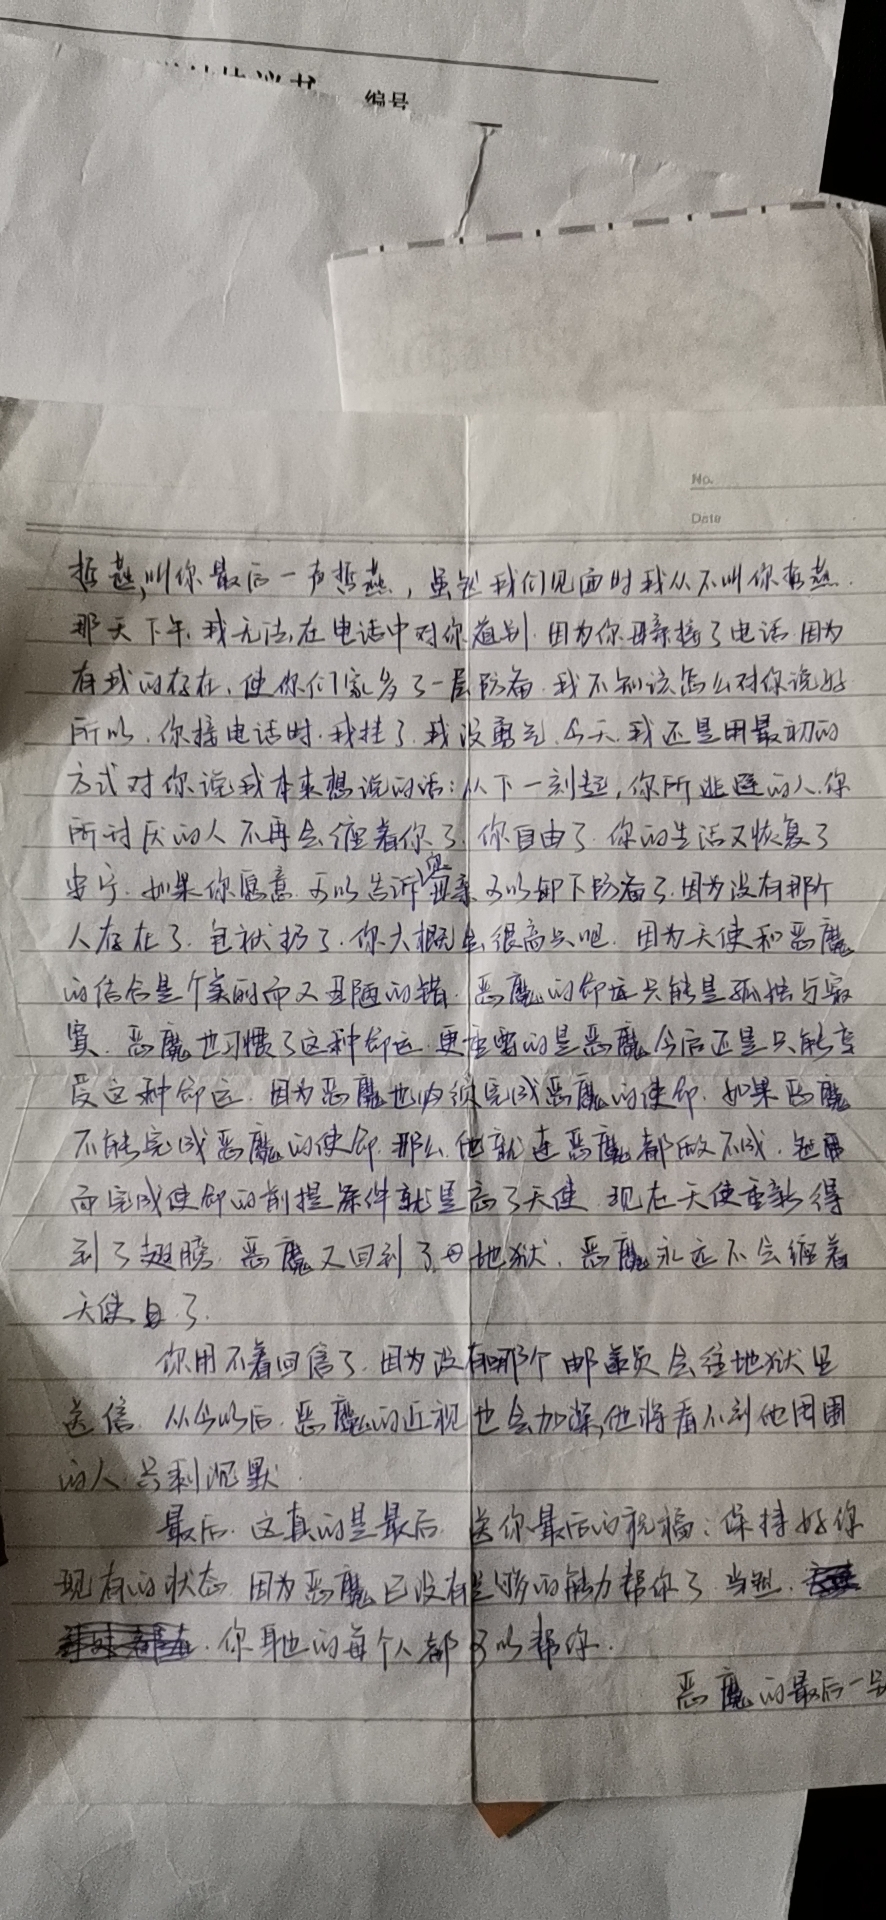 编号
No.
Date
哲燕,叫你最后一声哲燕,虽然我们见面时我从不叫你哲燕.
那天下午,我无法在电话中对你道别.因为你母亲接了电话.因为
有我的存在,使你们家多了一层防备.我不知该怎么对你说好
所以,你接电话时.我挂了.我没勇气.今天,我还是用最初的
方式对你说我本来想说的话:从下一刻起,你所逃避的人.你
所讨厌的人不再会缠着你了.你自由了.你的生活又恢复了
安宁.如果你愿意.可以告诉您母亲可以卸下防备了.因为没有那个
人存在了.包袱扔了.你大概会很高兴吧.因为天使和恶魔
的结合是个美丽而又丑陋的错.恶魔的命运只能是孤独与寂
寞.恶魔也习惯了这种命运.更重要的是恶魔今后还是只能享
受这种命运.因为恶魔也必须完成恶魔的使命.如果恶魔
不能完成恶魔的使命.那么他就连恶魔都做不成.
而完成使命的前提条件就是离了天使.现在天使重新得
到了翅膀.恶魔又回到了地狱.恶魔永远不会缠着
天使了.
你用不着回信了.因为没有哪个邮递员会往地狱里
送信.从今以后.恶魔的近视也会加深,他将看不到他周围
的人.只剩沉默.
最后.这真的是最后.送你最后的祝福:保持好你
现有的状态.因为恶魔已没有足够的能力帮你了.当然.
你身边的每个人都可以帮你.
恶魔的最后一